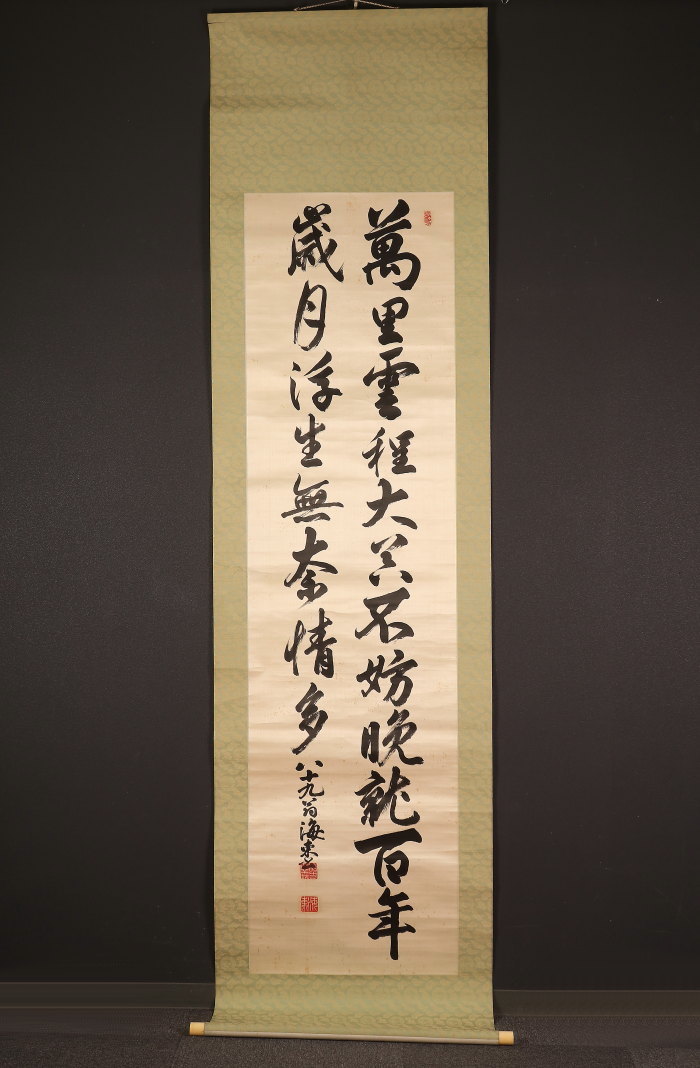 萬里雲程大器不妨晚就百年
歳月浮生無奈情多
八十九翁海東